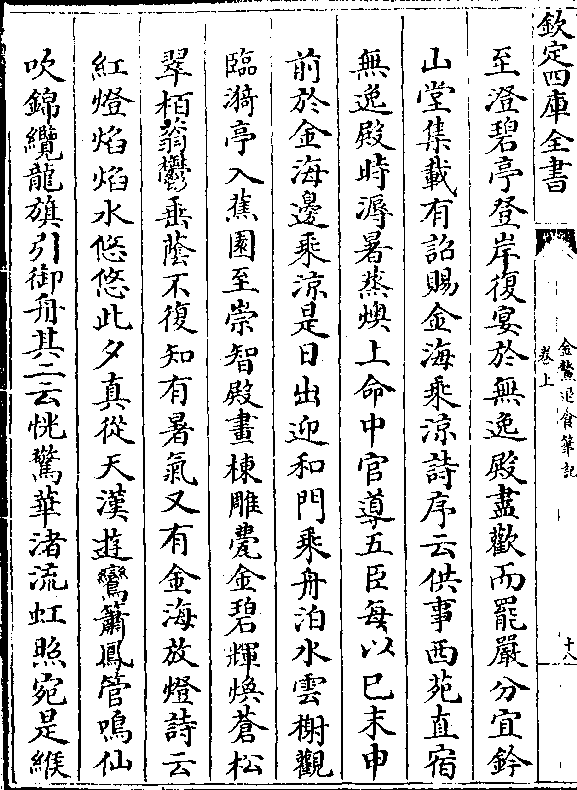 欽定四庫全書
金鰲退食筆記
卷上
十八
至澄碧亭登岸復宴於無逸殿盡歡而罷嚴分宜鈐
山堂集載有詔賜金海乘涼詩序云供事西苑直宿
無逸殿時溽暑蒸燠上命中官導五臣每以巳末申
前於金海邊乘涼是日出迎和門乘舟泊水雲榭觀
臨漪亭入蕉園至崇智殿畫棟雕甍金碧輝煥蒼松
翠栢蓊鬱垂蔭不復知有暑氣又有金海放燈詩云
紅燈焰焰水悠悠此夕真從天漢遊鸞簫鳳管鳴仙
吹錦纜龍旗引御舟其二云恍驚華渚流虹照宛是緱